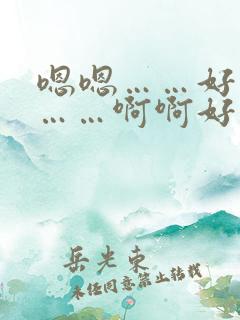 嗯嗯……好
……啊啊好
岳光东
未经同意禁止转载